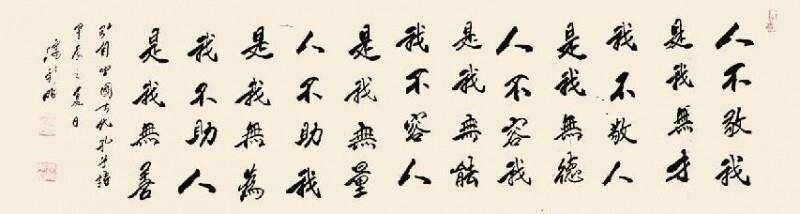 人不敬我
是我無才
我不敬人
是我無德
人不容我
是我無能
我不容人
是我無量
人不助我
是我無為
我不助人
是我無善
引自中國古代孔子語
甲辰之夏日